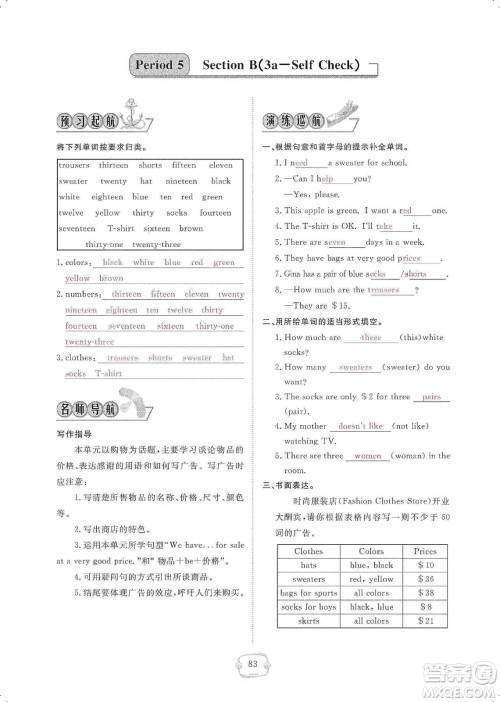 Period 5 Section B(3a—Self Check)
预习起航
将下列单词按要求归类。
trousers thirteen shorts fifteen eleven
sweater twenty hat nineteen twenty
black eighteen blue ten red green
twelve yellow thirty socks fourteen
seventeen T-shirt sixteen brown white
thirty-one twenty-three
1. colors: black white blue red green
yellow brown
2. numbers: thirteen fifteen eleven twenty
nineteen eighteen ten twelve thirty
fourteen seventeen sixteen thirty-one
twenty-three
3. clothes: trousers shorts sweater hat
socks T-shirt
名师导航
写作指导
本单元以购物为话题,主要学习谈论物品的
价格、表达感谢的用语和如何写广告。写广告时
应注意:
1. 写清楚所售物品的名称、价格、颜色等。
2. 写出商店的特色。
3. 用上本单元所学句型“We have...for sale
at a very good price.”和“物品+be+价格”。
4. 可用疑问句的方式引出所谈商品。
5. 结尾要体现广告的作用,呼吁人们来购买。
演练巡航
一、根据句意和首字母的提示补全单词。
1. I need a sweater for school.
2. —Can I help you?
—Yes, please.
3. This apple is green. I want a red one.
4. The T-shirt is OK. I'll take it.
5. There are seven days in a week.
6. They have bags at very good prices.
7. Gina has a pair of blue socks/shorts.
8. —How much are the trousers?
—They are $15.
二、用所给单词的适当形式填空。
1. How much are these (this)white
socks?
2. How many sweaters (sweater) do
you have?
3. The socks are only $2 for three pairs
(pair).
4. My mother doesn't like (not like)
watching TV.
5. There are three women (woman) in
the room.
三、书面表达。
时尚服装店(Fashion Clothes Store)开业
大酬宾,请你根据下列表格写一则不少于60
词的广告。
Clothes Colors Prices
hats blue, black $10
sweaters red, yellow $36
bags for sports black, blue $38
socks for boys black, blue $8
skirts all colors $21
83